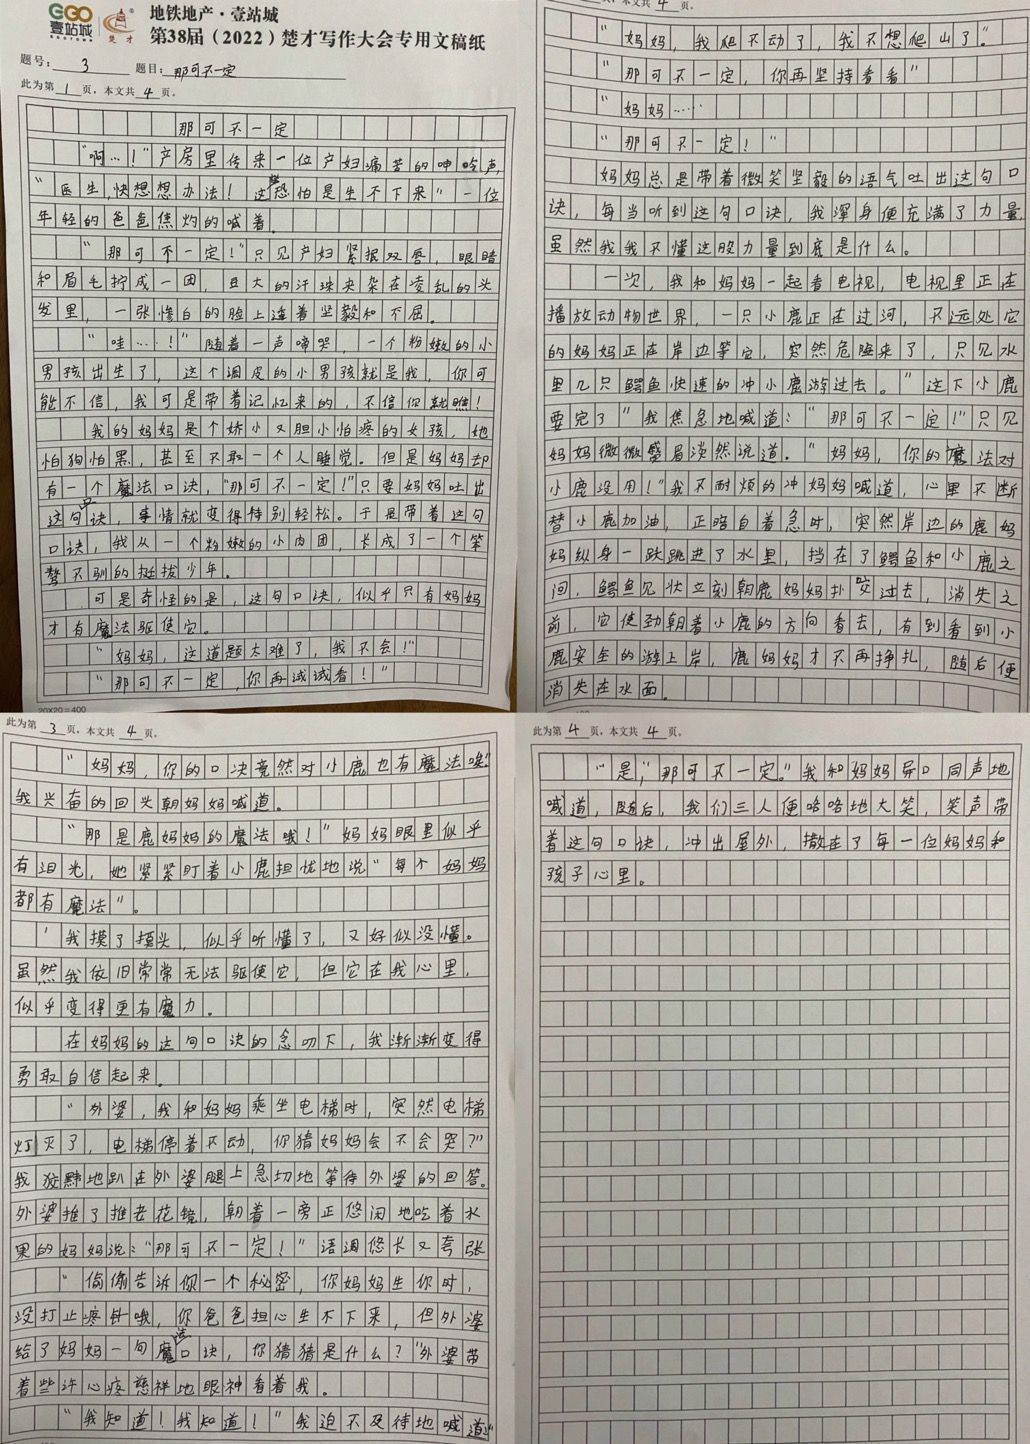 GGO 壹站城 楚才
地铁地产·壹站城
第38届（2022）楚才写作大会专用文稿纸
题号：3 题目：那可不一定
此为第1页，本文共4页。
那可不一定
“啊…！”产房里传来一位产妇痛苦的呻吟声，
“医生，快想想办法！这恐怕是生不下来”一位
年轻的爸爸焦灼的喊着。
“那可不一定！”只见产妇紧抿双唇，眼睛
和眉毛拧成一团，豆大的汗珠夹杂在凌乱的头
发里，一张惨白的脸上连着坚毅和不屈。
“哇…！”随着一声啼哭，一个粉嫩的小
男孩出生了，这个调皮的小男孩就是我，你可
能不信，我可是带着记忆来的，不信你就瞧！
我的妈妈是个娇小又胆小怕疼的女孩，她
怕狗怕黑，甚至不敢一个人睡觉。但是妈妈却
有一个魔法口诀，“那可不一定！”只要妈妈吐出
这句口诀，事情就变得特别轻松。于是带着这句
口诀，我从一个粉嫩的小肉团，长成了一个桀
骜不驯的挺拔少年。
可是奇怪的是，这句口诀，似乎只有妈妈
才有魔法驱使它。
“妈妈，这道题太难了，我不会！”
“那可不一定，你再试试看！”
20×20=400
本文共4页。
“妈妈，我爬不动了，我不想爬山了。”
“那可不一定，你再坚持看看”
“妈妈……
“那可不一定！”
妈妈总是带着微笑坚毅的语气吐出这句口
诀，每当听到这句口诀，我浑身便充满了力量，
虽然我我不懂这股力量到底是什么。
一次，我和妈妈一起看电视，电视里正在
播放动物世界，一只小鹿正在过河，不远处它
的妈妈正在岸边等它，突然危险来了，只见水
里几只鳄鱼快速的冲小鹿游过去。“这下小鹿
要完了”我焦急地喊道：“那可不一定！”只见
妈妈微微蹙眉淡然说道。“妈妈，你的魔法对
小鹿没用！”我不耐烦的冲妈妈喊道，心里不断
替小鹿加油，正暗自着急时，突然岸边的鹿妈
妈纵身一跃跳进了水里，挡在了鳄鱼和小鹿之
间，鳄鱼见状立刻朝鹿妈妈扑咬过去，消失之
前，它使劲朝着小鹿的方向看去，有到看到小
鹿安全的游上岸，鹿妈妈才不再挣扎，随后便
消失在水面。
此为第3页，本文共4页。
“妈妈，你的口决竟然对小鹿也有魔法唉！”
我兴奋的回头朝妈妈喊道。
“那是鹿妈妈的魔法哦！”妈妈眼里似乎
有泪光，她紧紧盯着小鹿担忧地说“每个妈妈
都有魔法”。
我摸了摸头，似乎听懂了，又好似没懂。
虽然我依旧常常无法驱使它，但它在我心里，
似乎变得更有魔力。
在妈妈的这句口诀的念叨下，我渐渐变得
勇敢自信起来。
“外婆，我和妈妈乘坐电梯时，突然电梯
灯灭了，电梯停着不动，你猜妈妈会不会哭？”
我狡黠地趴在外婆腿上急切地等待外婆的回答。
外婆推了推老花镜，朝着一旁正悠闲地吃着水
果的妈妈说：“那可不一定！”语调悠长又夸张
“偷偷告诉你一个秘密，你妈妈生你时，
没打止疼针哦，你爸爸担心生不下来，但外婆
给了妈妈一句魔法口诀，你猜猜是什么？”外婆带
着些许心疼慈祥地眼神看着我。
“我知道！我知道！”我迫不及待地喊道“
此为第4页，本文共4页。
“是，“那可不一定。”我和妈妈异口同声地
喊道，随后，我们三人便咯咯地大笑，笑声带
着这句口诀，冲出屋外，撒在了每一位妈妈和
孩子心里。